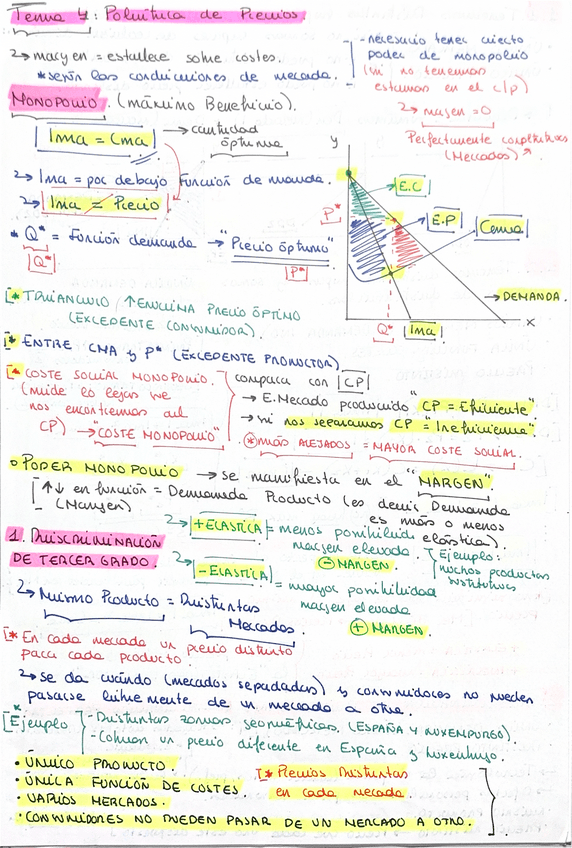 Tema 4: Política de Precios.
→ margen = establece sobre costes.
* serán las condiciones de mercado.
- necesario tener cierto
poder de monopolio
(si no tenemos
estamos en el c/p)
→ margen = 0
Perfectamente competitivos
(Mercados)
MONOPOLIO. (máximo Beneficio).
Ima = Cma → cantidad
óptima
→ Ima = por debajo función demanda.
→ Ima = Precio
* Q* = Función demanda → "Precio óptimo"
Q*
P*
y
E.C
P*
E.P
Cma
DEMANDA.
x
Q*
Ima
* TRIANGULO ↑ ENCIMA PRECIO ÓPTIMO
(EXCEDENTE CONSUMIDOR).
* ENTRE CMA y P* (EXCEDENTE PRODUCTOR)
* COSTE SOCIAL MONOPOLIO.
(mide lo lejos que
nos encontremos del
CP) → "COSTE MONOPOLIO"
compara con CP
→ E. Mercado producido "CP = Eficiente"
→ si nos separamos CP = Ineficiencia"
* más ALEJADOS = MAYOR COSTE SOCIAL.
○ PODER MONOPOLIO → se manifiesta en el "MARGEN".
↑↓ en función = Demanda Producto (es decir Demanda
(Margen) es más o menos
elástica).
→ + ELASTICA = menos posibilidad
margen elevado.
- MARGEN.
Ejemplo:
muchos productos
sustitutivos
→ - ELASTICA = mayor posibilidad
margen elevada
+ MARGEN.
1. Discriminación
DE TERCER GRADO.
→ Mismo Producto = Distintos
Mercados.
* En cada mercado un precio distinto
para cada producto.
→ se da cuándo (mercados separados) y consumidores no pueden
pasarse libremente de un mercado a otro.
* Ejemplo
- Distintas zonas geométricas. (ESPAÑA Y LUXEMBURGO).
- Cobran un precio diferente en España y Luxemburgo.
• ÚNICO PRODUCTO
• ÚNICA FUNCIÓN DE COSTES.
• VARIOS MERCADOS.
• CONSUMIDORES NO PUEDEN PASAR DE UN MERCADO A OTRO.
* Precios Distintos
en cada mercado